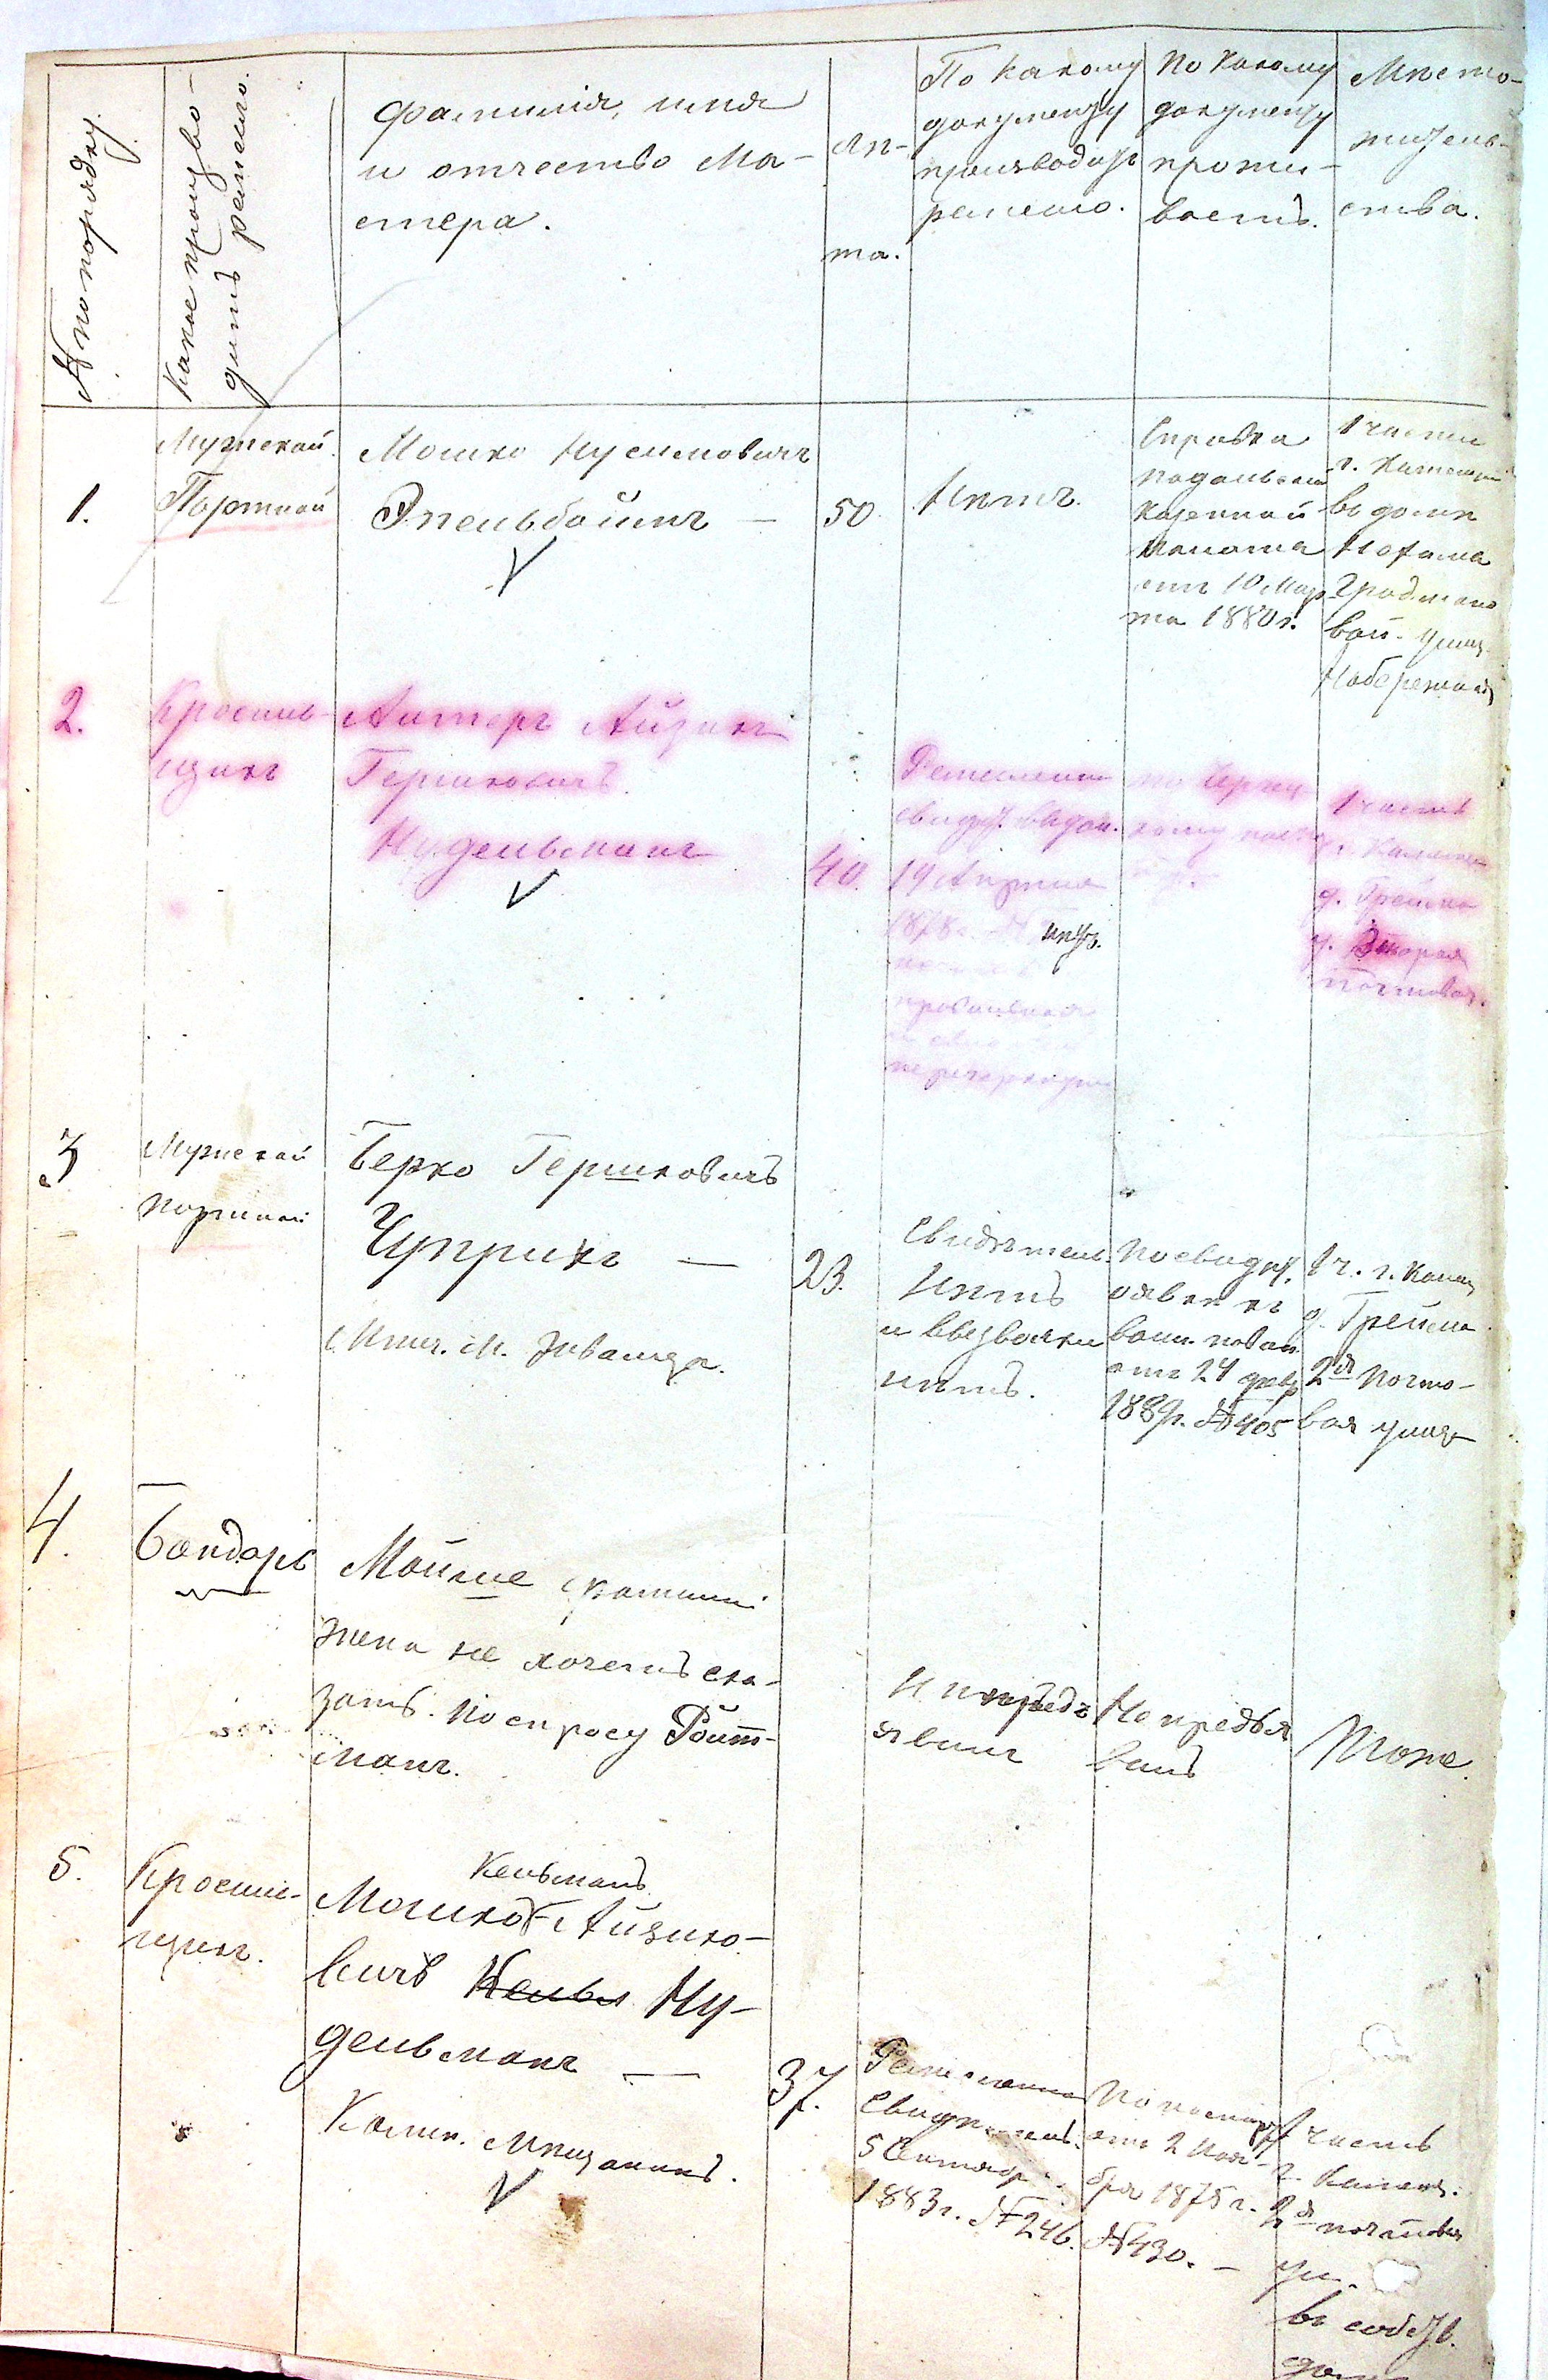 № по порядку.
Какое произво-
дитъ ремесло.
Фамилія, имя
и отчество ма-
стера.
Лѣ-
та.
По какому
документу
производитъ
ремесло.
По какому
документу
прожи-
ваетъ.
Мѣсто-
житель-
ства.
1.
Мужской
Портной
Мошко Нусимовичъ
Эпельбоймъ —
50
Нѣтъ.
Справка
Подольской
Казенной
Палаты
отъ 10 Мар-
та 1880 г.
1 части
г. Каменца
въ домѣ
Нахама
вой. улиц.
Набережная
2.
Красиль-
щикъ
Литеръ Айзикъ
Гершковичъ
Нудельманъ
40.
Ремеслен
свидѣт. выдан.
19 Апрѣля
1878 г.
нѣтъ.
1 часть
г. Камен
д. Грейма
у. Вторая
Почтовая.
3
Мужской
портной
Берко Гершковичъ
Чуприкъ —
Мѣщ. м. Званца.
23.
Свидѣтель.
нѣтъ
и вывѣски
нѣтъ.
По свидѣт.
о явкѣ къ
воин. повин.
отъ 24 февр
1889 г. № 405
1 ч. г. Камен
д. Грейма
2я Почто-
вая улица
4.
Бондарь
Мойше фамиліи
жена не хочетъ ска-
зать. По спросу Ройт-
манъ.
Не предъ
явилъ
Не предъя
вилъ
Тоже.
5.
Красиль-
щикъ.
Кельманъ
Мошко-Айзико-
вичъ Кельм Ну-
дельманъ —
Камен. Мѣщанинъ.
37.
Ремесленно
Свидѣтель.
5 Сентябр.
1883 г. № 246.
По паспорт
отъ 2 Ноя-
бря 1875 г.
№ 430. —
1 часть
г. Каменц.
2я почтовая
ул.
въ собств.
домѣ